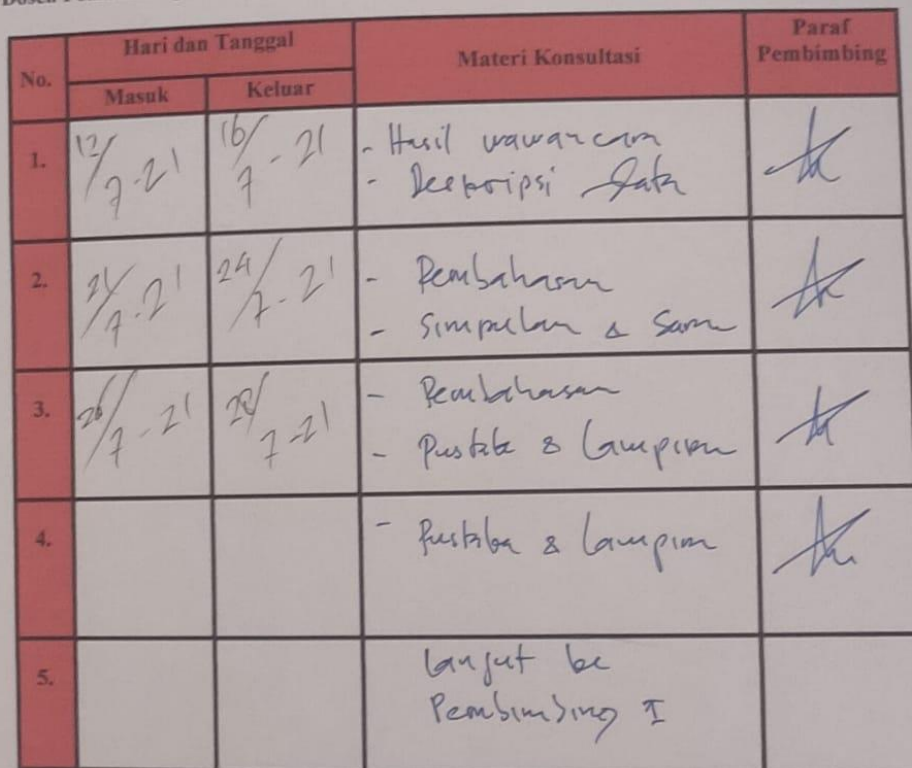 No.
Hari dan Tanggal
Materi Konsultasi
Paraf
Pembimbing
Masuk
Keluar
1.
12/7-21
16/7-21
- Hasil wawancara
- Deskripsi Data
2.
21/7-21
24/7-21
- Pembahasan
- Simpulan & Saran
3.
26/7-21
28/7-21
- Pembahasan
- Pustaka & Lampiran
4.
- Pustaka & Lampiran
5.
Lanjut ke
Pembimbing I